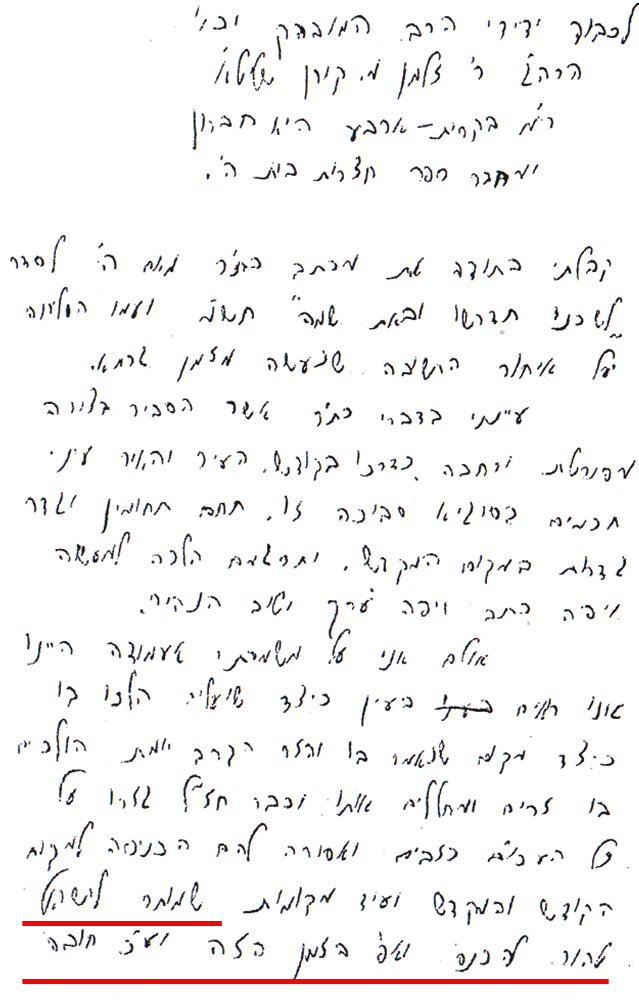 לכבוד ידידי הרב המובהק וכו'
הרה"ג ר' זלמן מ. קורן שליט"א
ר"מ בקרית-ארבע היא חברון
ומחבר ספר חצרות בית ה'.
קבלתי בתודה את מכתב כת"ר מאת ה' לסדר
לשכנו תדרשו ובאת שמה תשמ ועמו הסליחה
על איחור התשובה שנעשה מזמן גרמא.
עיינתי בדברי כת"ר אשר הסביר בצורה
מפורטת ורחבה כדרכו בקודש, העיר והאיר עיני
חכמים בסוגיא סביכה זו, תחם תחומין וגדר
גדרות במקום המקדש, ותרגמם הלכה למעשה
ויפה כתב ויפה ערך ושיב הנהיר.
אולם אני על משמרתי אעמודה היינו
אינו רואים בעין כיצד שועלים הלכו בו
כיצד מקום שנאמר בו והזר הקרב יומת הולכים
בו זרים ומחללים אותו וכבר חז"ל גזרו על
כל העכו"ם כזבים ואסורה להם הכניסה למקום
הקודש והמקדש ועוד מקומות שמותר לישראל
טהור להכנס ואפי' בזמן הזה וע"כ חובה